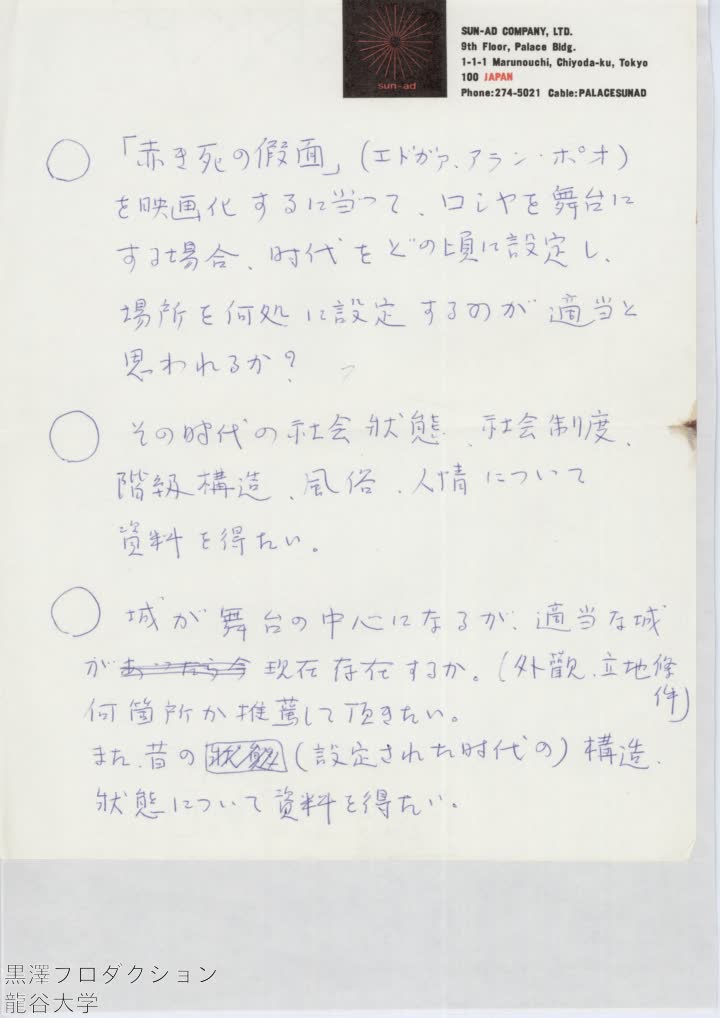 sun-ad
SUN-AD COMPANY, LTD.
9th Floor, Palace Bldg.
1-1-1 Marunouchi, Chiyoda-ku, Tokyo
100 JAPAN
Phone:274-5021 Cable:PALACESUNAD
○「赤き死の假面」(エドガァ、アラン・ポオ)
を映画化するに当つて、ロシヤを舞台に
する場合、时代をどの頃に設定し、
場所を何処に設定するのが適当と
思われるか?
○その时代の社会狀態、社会制度、
階級構造、風俗、人情について
資料を得たい。
○城が舞台の中心になるが、適当な城
が現在存在するか。(外觀、立地條
件)
何箇所か推薦して頂きたい。
また、昔の狀態(設定された时代の)構造、
狀態について資料を得たい。
黒澤プロダクション
龍谷大学